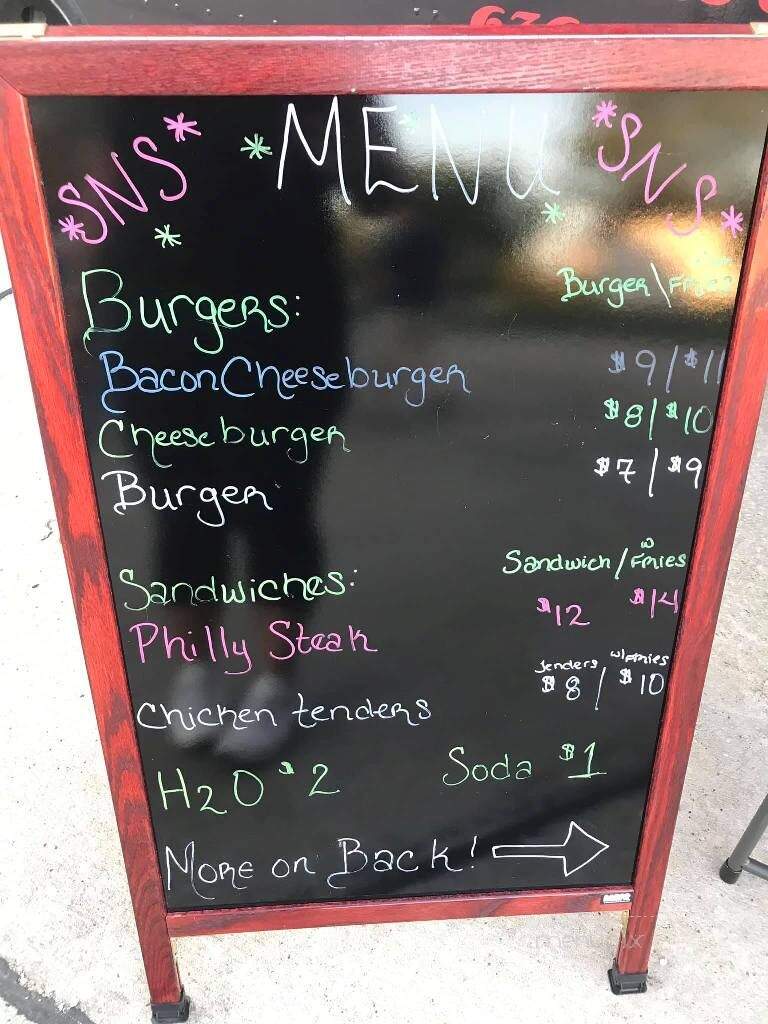 *SNS* *MENU* *SNS*
*
Burgers: Burger \ Fries
Bacon Cheeseburger $9 / $11
Cheeseburger $8 / $10
Burger $7 / $9
Sandwiches: Sandwich / w Fries
Philly Steak $12 $14
Tenders w/ Fries
Chicken tenders $8 / $10
H2O $2 Soda $1
More on Back!